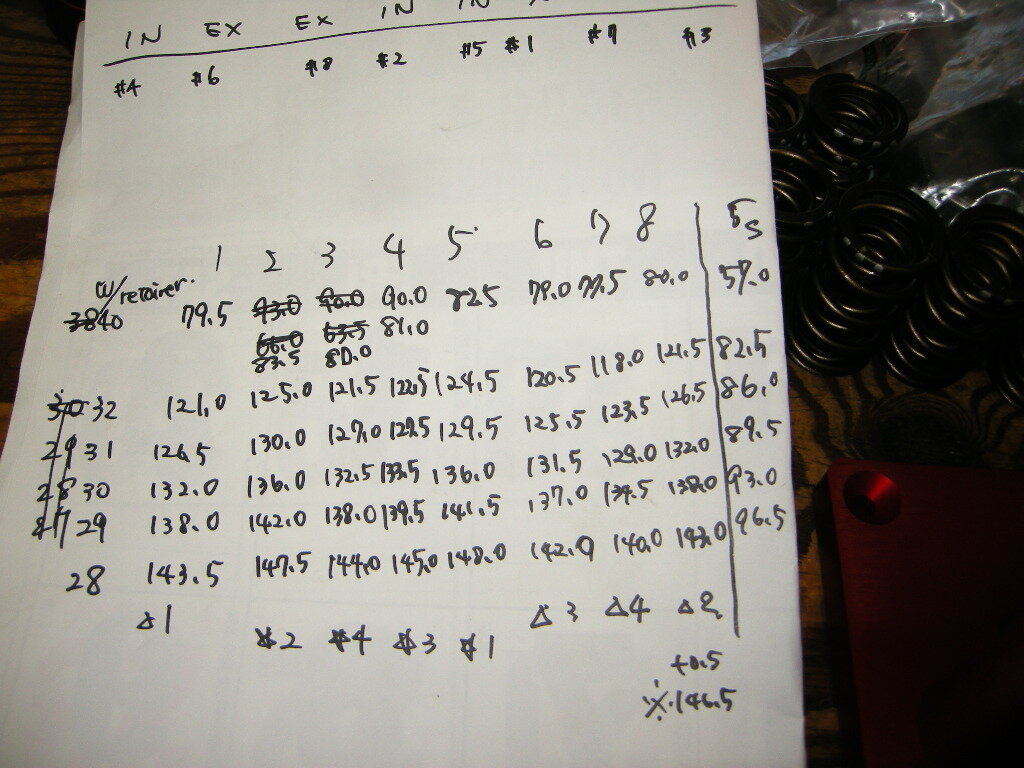 IN EX EX IN IN
#4 #6 #8 #2 #5 #1 #7 #3
1 2 3 4 5 6 7 8 5s
w/retainer.
3840 79.5 93.0 90.0 90.0 82.5 79.0 77.5 80.0 57.0
66.0 63.5 81.0
83.5 80.0
30 32 121.0 125.0 121.5 122.5 124.5 120.5 118.0 121.5 82.5
29 31 126.5 130.0 127.0 127.5 129.5 125.5 123.5 126.5 86.0
28 30 132.0 136.0 132.5 133.5 136.0 131.5 129.0 132.0 89.5
27 29 138.0 142.0 138.0 139.5 141.5 137.0 134.5 138.0 93.0
28 143.5 147.5 144.0 145.0 148.0 142.0 140.0 143.0 96.5
△1 #2 #4 #3 #1 △3 △4 △2
+0.5
※146.5